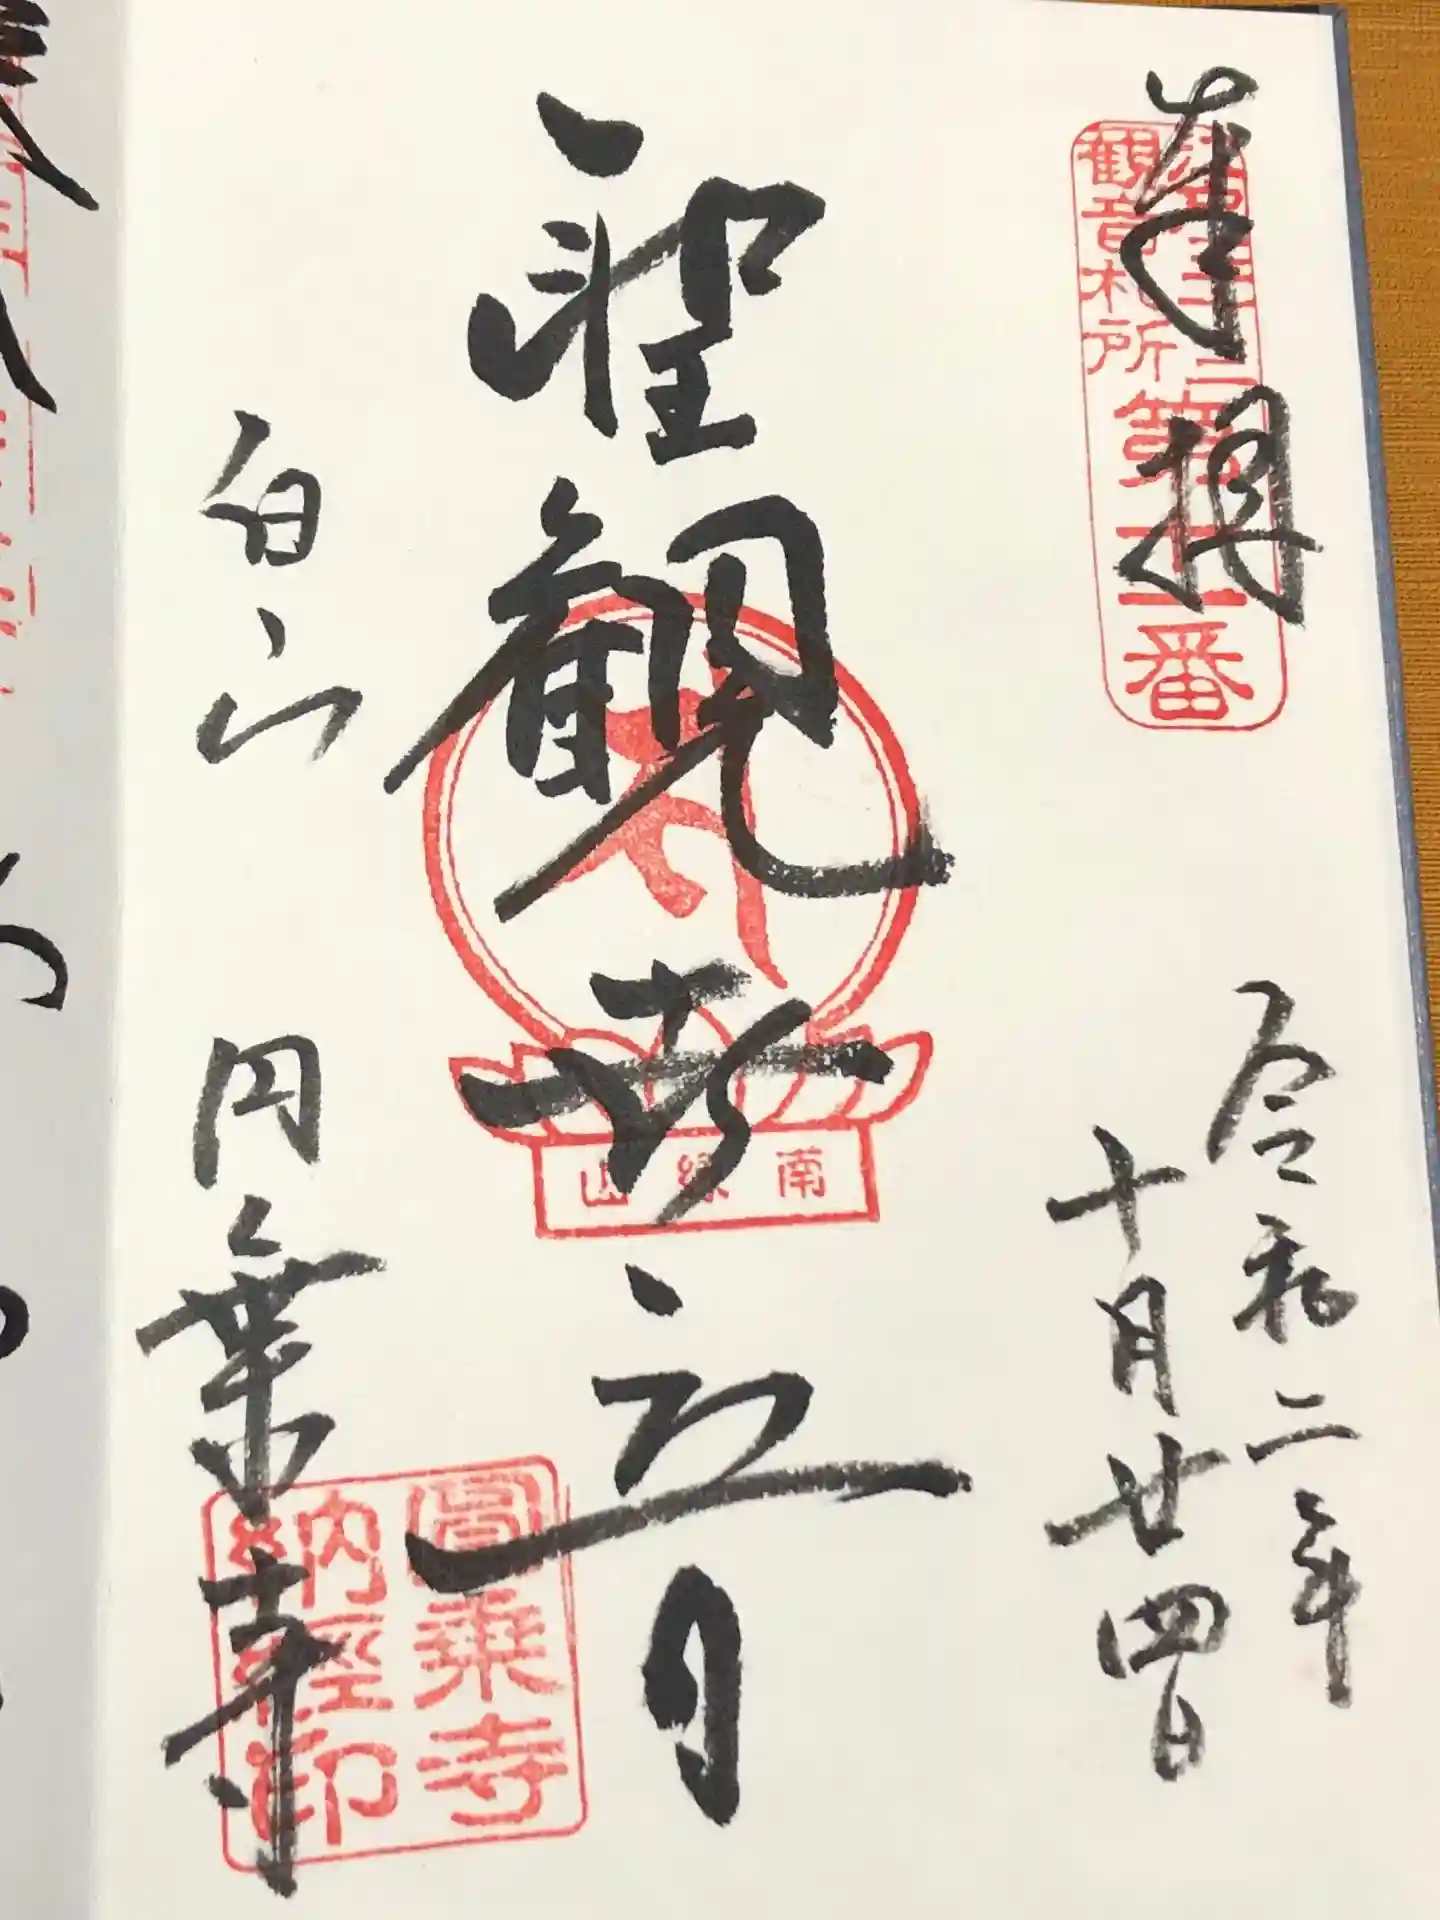 奉拝
江戸三十三
観音札所
第十一番
令和二年
十月廿四日
聖観世音
南緑山
白山
円乗寺
圓乗寺
納經印